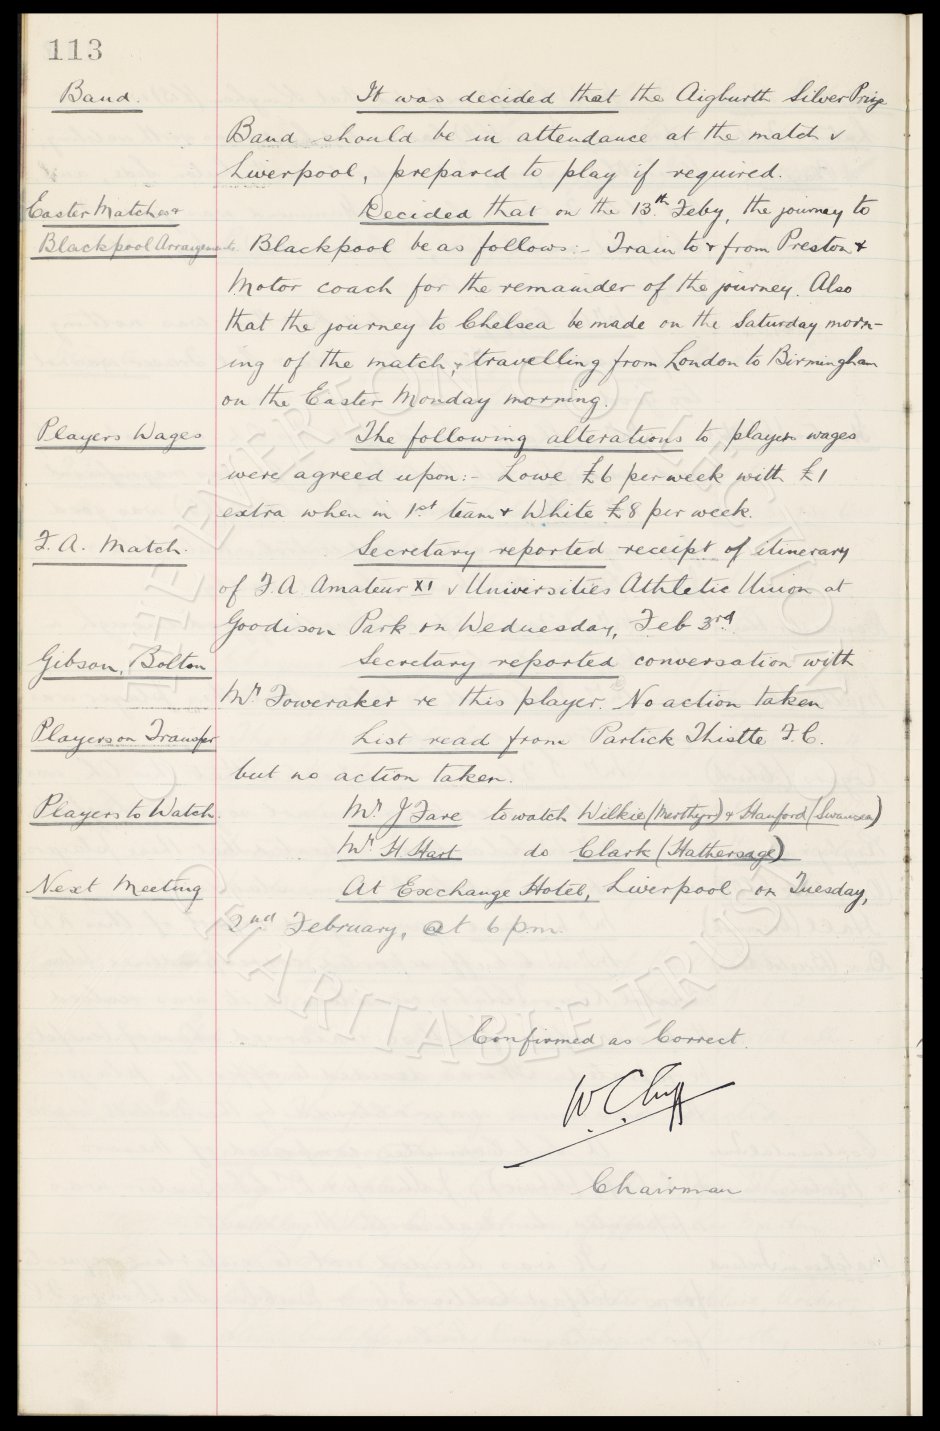 113
Band. It was decided that the Aigburth Silver Prize
Band should be in attendance at the match v
Liverpool, prepared to play if required.
Easter Matches & Decided that on the 13th Feby, the journey to
Blackpool Arrangements Blackpool be as follows:- Train to & from Preston &
Motor coach for the remainder of the journey. Also
that the journey to Chelsea be made on the Saturday morn-
ing of the match, & travelling from London to Birmingham
on the Easter Monday morning.
Players Wages The following alterations to players wages
were agreed upon:- Lowe £6 per week with £1
extra when in 1st team & White £8 per week.
F.A. Match. Secretary reported receipt of itinerary
of F.A. Amateur XI v Universities Athletic Union at
Goodison Park on Wednesday, Feb 3rd.
Gibson, Bolton Secretary reported conversation with
Mr. Foweraker re this player. No action taken
Players on Transfer List read from Partick Thistle F.C.
but no action taken.
Players to Watch. Mr J Fare to watch Wilkie (Merthyr) & Hanford (Swansea)
Mr H. Hart do Clark (Hathersage)
Next Meeting At Exchange Hotel, Liverpool on Tuesday,
2nd February, at 6 p.m.
Confirmed as Correct.
W.C. Cuff
Chairman
THE EVERTON COLLECTION
CHARITABLE TRUST